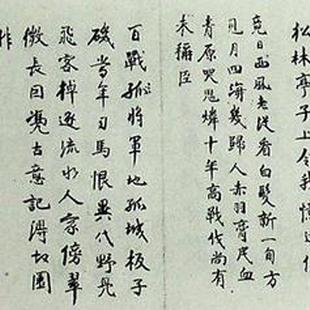 松林亭子上令我憶
竟日西風老從看白髮新一自方
見月四海幾歸人赤羽膏民血
青原哭鬼燐十年高戰伐尚有
未稱臣
百戰孤將軍地孤城板子
磯當年司馬恨異代野鳧
飛客棹逐流水人家傍翠
微長古意記得故園